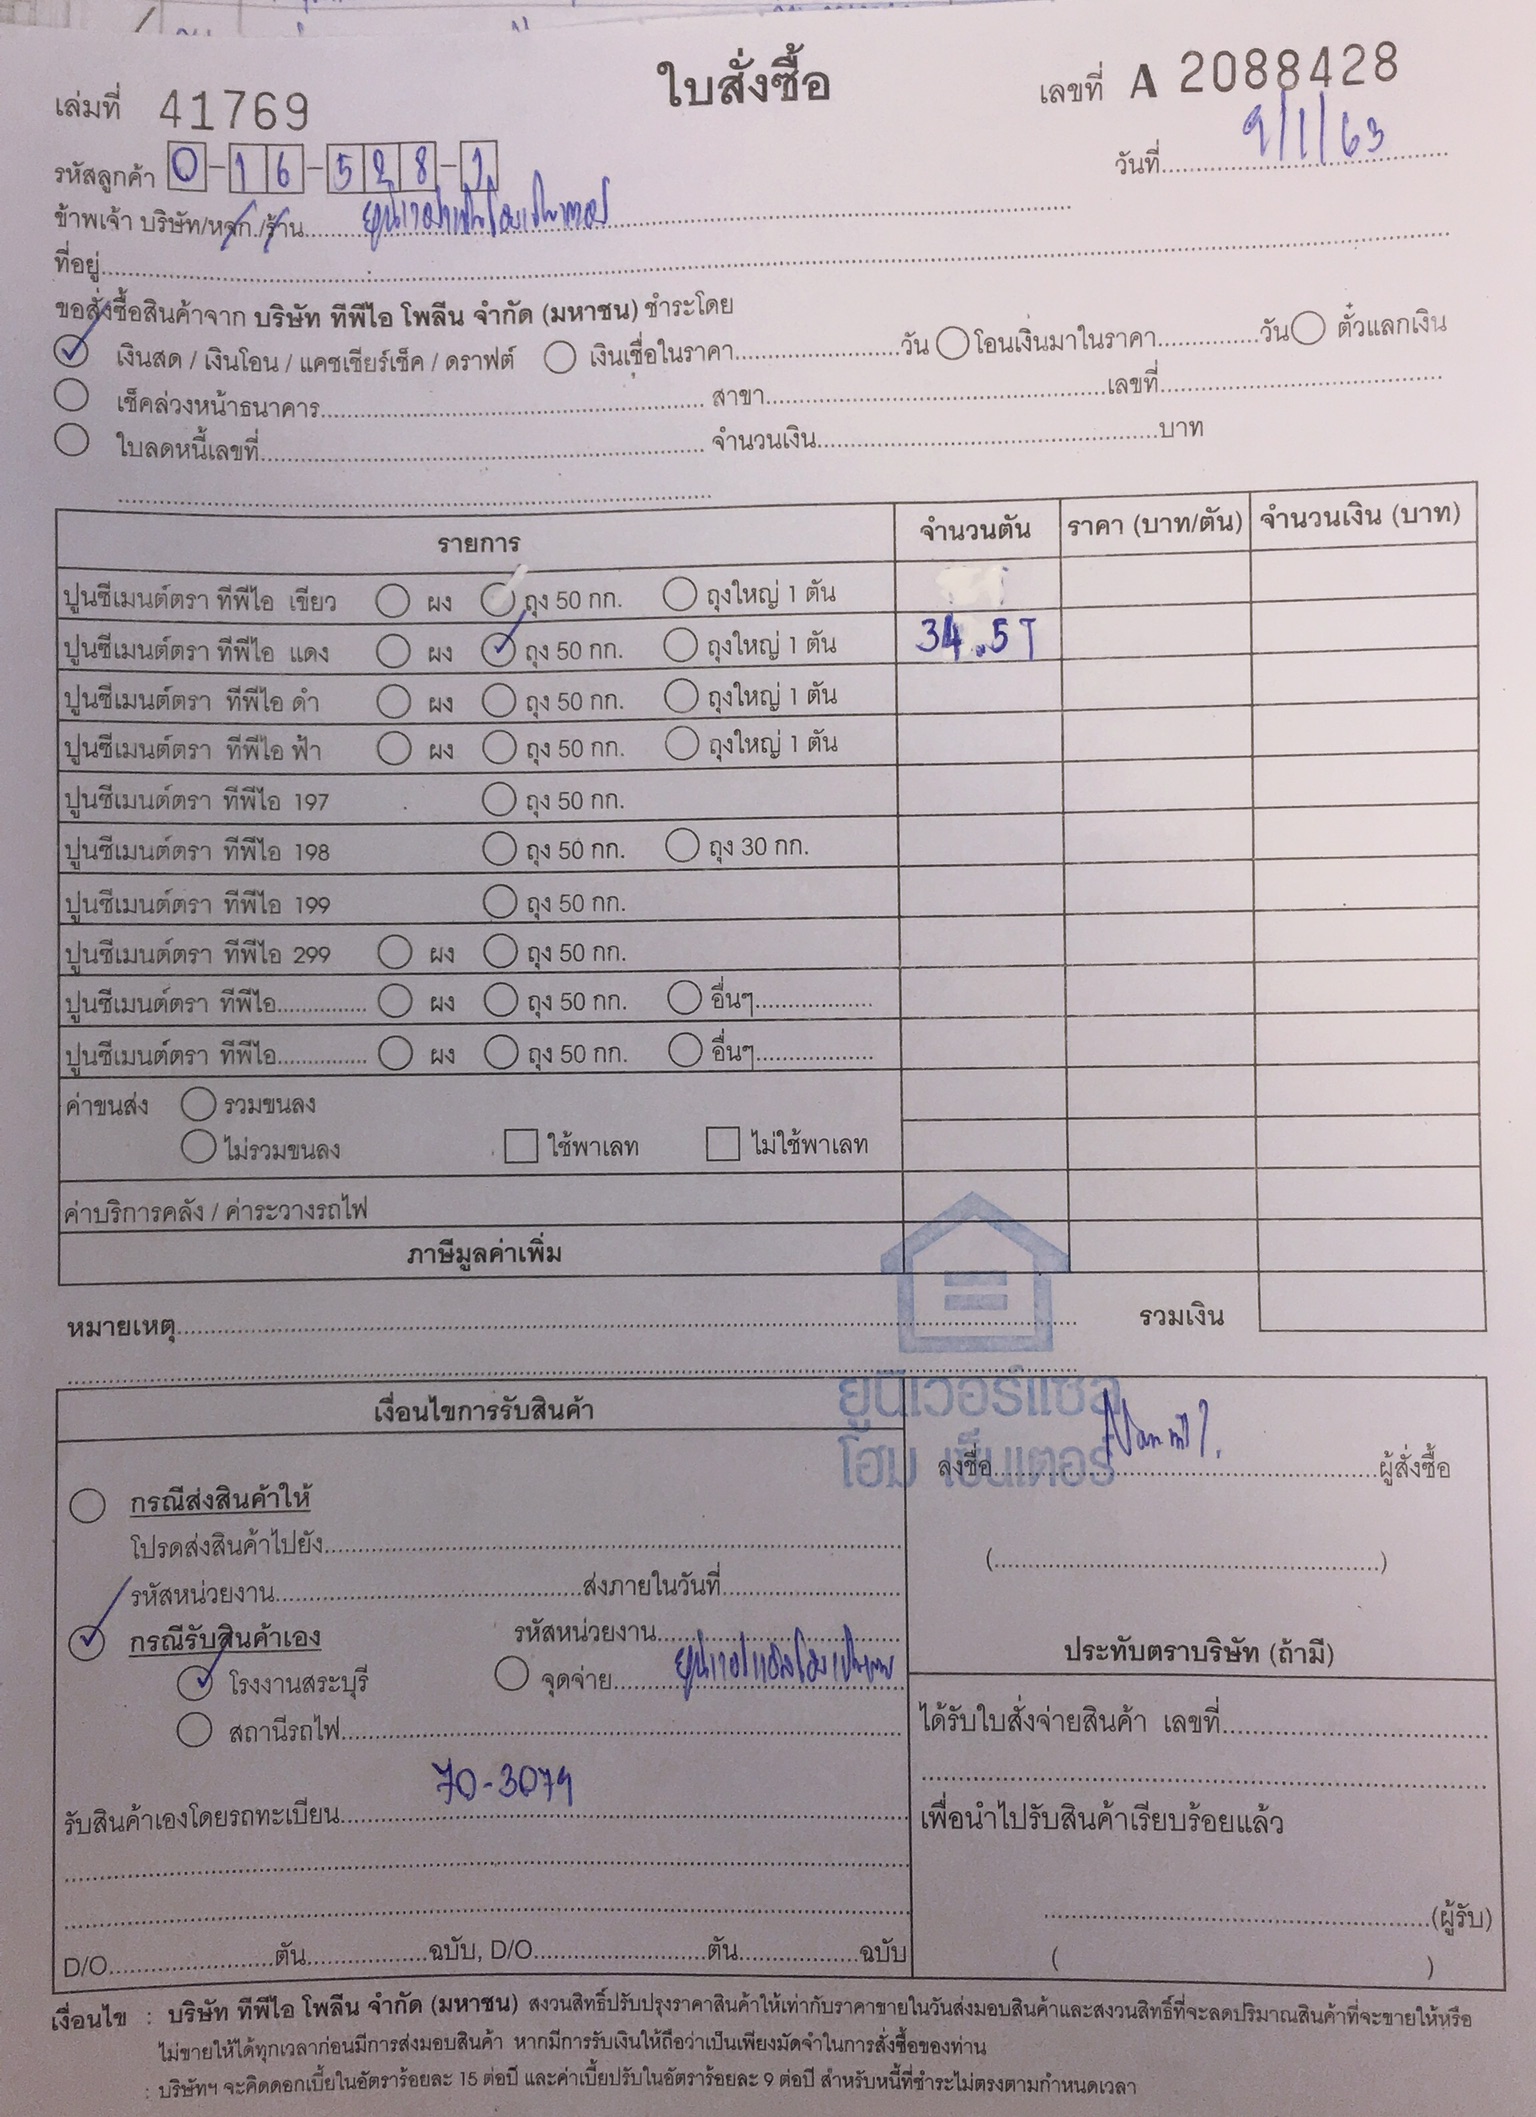 ใบสั่งซื้อ
เล่มที่ 41769
เลขที่ A 2088428
รหัสลูกค้า 0-16-528-1
วันที่ 9/1/63
ข้าพเจ้า บริษัท/หจก./ร้าน
ที่อยู่
ขอสั่งซื้อสินค้าจาก บริษัท ทีพีไอ โพลีน จำกัด (มหาชน) ชำระโดย
เงินสด / เงินโอน / แคชเชียร์เช็ค / ดราฟต์ เงินเชื่อในราคา วัน โอนเงินมาในราคา วัน ตั๋วแลกเงิน
เช็คล่วงหน้าธนาคาร สาขา เลขที่
ใบลดหนี้เลขที่ จำนวนเงิน บาท
รายการ จำนวนตัน ราคา (บาท/ตัน) จำนวนเงิน (บาท)
ปูนซีเมนต์ตรา ทีพีไอ เขียว ผง ถุง 50 กก. ถุงใหญ่ 1 ตัน
ปูนซีเมนต์ตรา ทีพีไอ แดง ผง ถุง 50 กก. ถุงใหญ่ 1 ตัน 34.5T
ปูนซีเมนต์ตรา ทีพีไอ ดำ ผง ถุง 50 กก. ถุงใหญ่ 1 ตัน
ปูนซีเมนต์ตรา ทีพีไอ ฟ้า ผง ถุง 50 กก. ถุงใหญ่ 1 ตัน
ปูนซีเมนต์ตรา ทีพีไอ 197 ถุง 50 กก.
ปูนซีเมนต์ตรา ทีพีไอ 198 ถุง 50 กก. ถุง 30 กก.
ปูนซีเมนต์ตรา ทีพีไอ 199 ถุง 50 กก.
ปูนซีเมนต์ตรา ทีพีไอ 299 ผง ถุง 50 กก.
ปูนซีเมนต์ตรา ทีพีไอ ผง ถุง 50 กก. อื่นๆ
ปูนซีเมนต์ตรา ทีพีไอ ผง ถุง 50 กก. อื่นๆ
ค่าขนส่ง รวมขนลง
ไม่รวมขนลง ใช้พาเลท ไม่ใช้พาเลท
ค่าบริการคลัง / ค่าระวางรถไฟ
ภาษีมูลค่าเพิ่ม
หมายเหตุ รวมเงิน
ยูนิเวอร์แซล
โฮม เซ็นเตอร์
เงื่อนไขการรับสินค้า
ลงชื่อ ผู้สั่งซื้อ
กรณีส่งสินค้าให้
โปรดส่งสินค้าไปยัง
( )
รหัสหน่วยงาน ส่งภายในวันที่
กรณีรับสินค้าเอง รหัสหน่วยงาน
ประทับตราบริษัท (ถ้ามี)
โรงงานสระบุรี จุดจ่าย
สถานีรถไฟ
ได้รับใบสั่งจ่ายสินค้า เลขที่
รับสินค้าเองโดยรถทะเบียน 70-3079
เพื่อนำไปรับสินค้าเรียบร้อยแล้ว
(ผู้รับ)
( )
D/O ตัน ฉบับ, D/O ตัน ฉบับ
เงื่อนไข : บริษัท ทีพีไอ โพลีน จำกัด (มหาชน) สงวนสิทธิ์ปรับปรุงราคาสินค้าให้เท่ากับราคาขายในวันส่งมอบสินค้าและสงวนสิทธิ์ที่จะลดปริมาณสินค้าที่จะขายให้หรือ
ไม่ขายให้ได้ทุกเวลาก่อนมีการส่งมอบสินค้า หากมีการรับเงินให้ถือว่าเป็นเพียงมัดจำในการสั่งซื้อของท่าน
: บริษัทฯ จะคิดดอกเบี้ยในอัตราร้อยละ 15 ต่อปี และค่าเบี้ยปรับในอัตราร้อยละ 9 ต่อปี สำหรับหนี้ที่ชำระไม่ตรงตามกำหนดเวลา